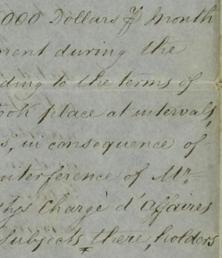 000 Dollars ⅌ Month
ment during the
ding to the terms of
ook place at intervals
s, in consequence of
interference of Mr.
Chargé d'Affaires
Subjects there, holders